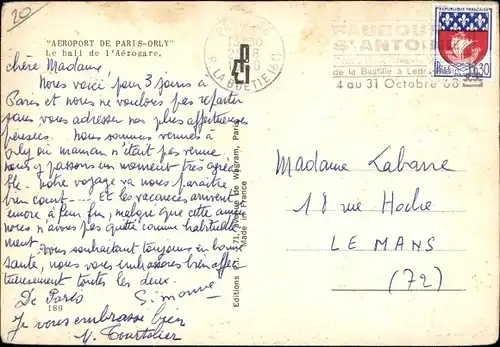 20
"AEROPORT DE PARIS-ORLY"
Le hall de l'Aérogare.
chère Madame,
Nous voici pour 3 jours à
Paris et nous ne voulons pas repartir
sans vous adresser nos plus affectueuses
pensées. Nous sommes venues à
Orly où maman n'était pas venue.
nous y passons un moment très agréa
ble. Notre voyage va nous paraître
bien court --- Et les vacances arrivent
encore à leur fin, malgré que cette année
nous n'avons pas quitté comme habituelle
ment.
Vous souhaitant toujours en bonne
santé, nous vous embrassons bien affec
tueusement toutes les deux.
De Paris Simonne
189
Je vous embrasse bien
Editions P.I. 71, Avenue de Wagram, Paris
Made in France
R. LA BOETIE (8e)
FAUBOURG
ST ANTOINE
de la Bastille à Ledr
4 au 31 Octobre 68
REPUBLIQUE FRANÇAISE
PARIS
0,30
Madame Labarre
18 rue Hoche
LE MANS
(72)